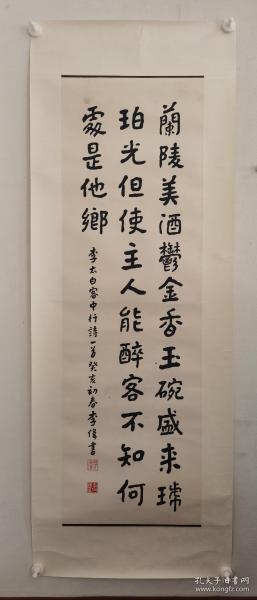 蘭陵美酒鬱金香玉碗盛来琥
珀光但使主人能醉客不知何
處是他鄉
李太白客中行詩一首癸亥初春李偉書
孔夫子旧书网
www.kongfz.com